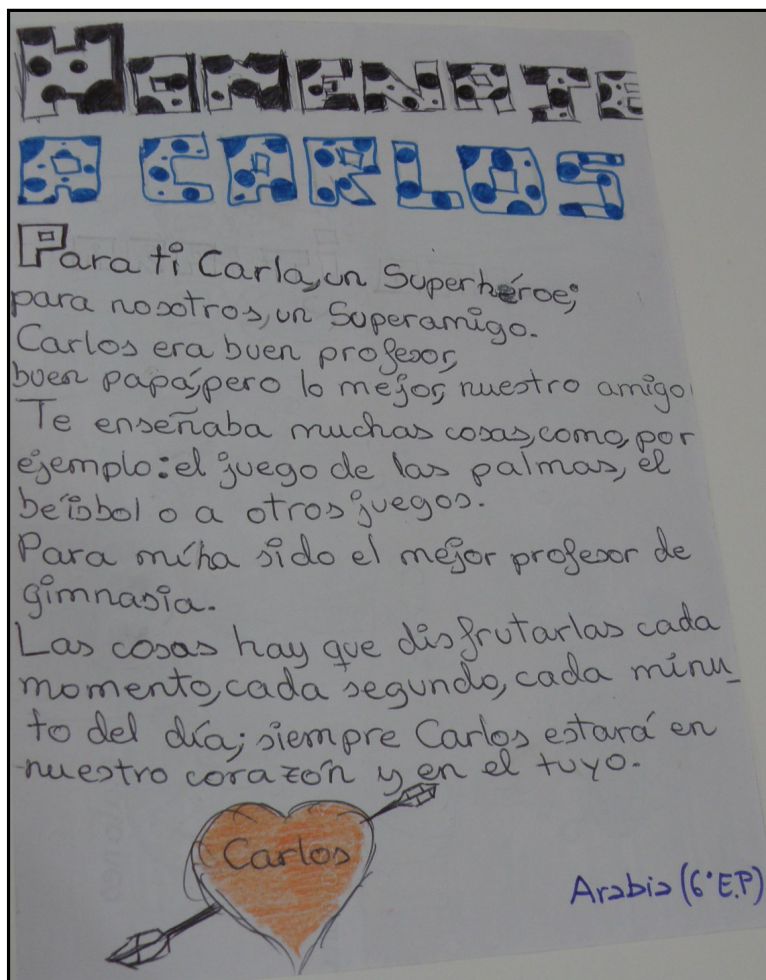 HOMENAJE
A CARLOS
Para ti Carla, un Superhéroe;
para nosotros, un Superamigo.
Carlos era buen profesor,
buen papá, pero lo mejor, nuestro amigo
Te enseñaba muchas cosas, como, por
ejemplo: el juego de las palmas, el
beísbol o a otros juegos.
Para mí ha sido el mejor profesor de
gimnasia.
Las cosas hay que disfrutarlas cada
momento, cada segundo, cada minu_
to del día; siempre Carlos estará en
nuestro corazón y en el tuyo.
Carlos
Arabia (6° E.P)